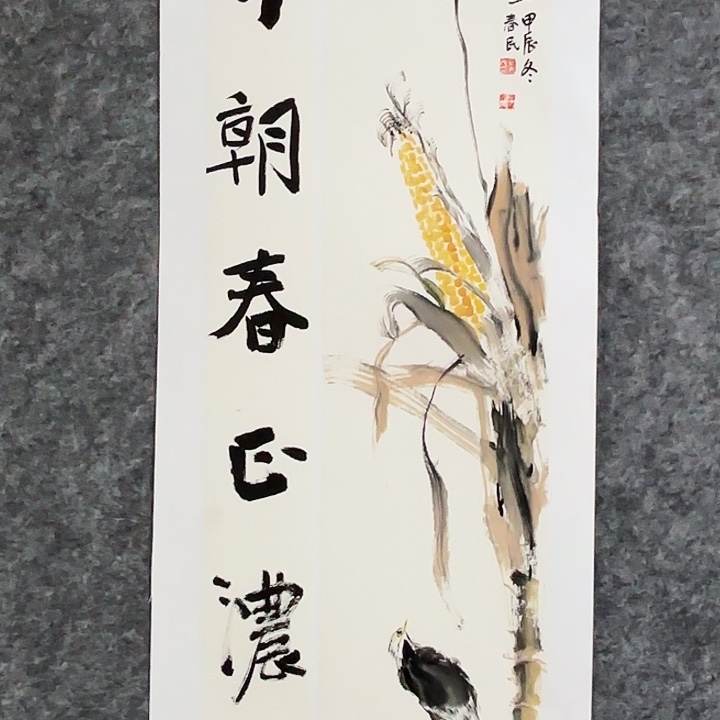 甲辰冬
春民
朝春正濃